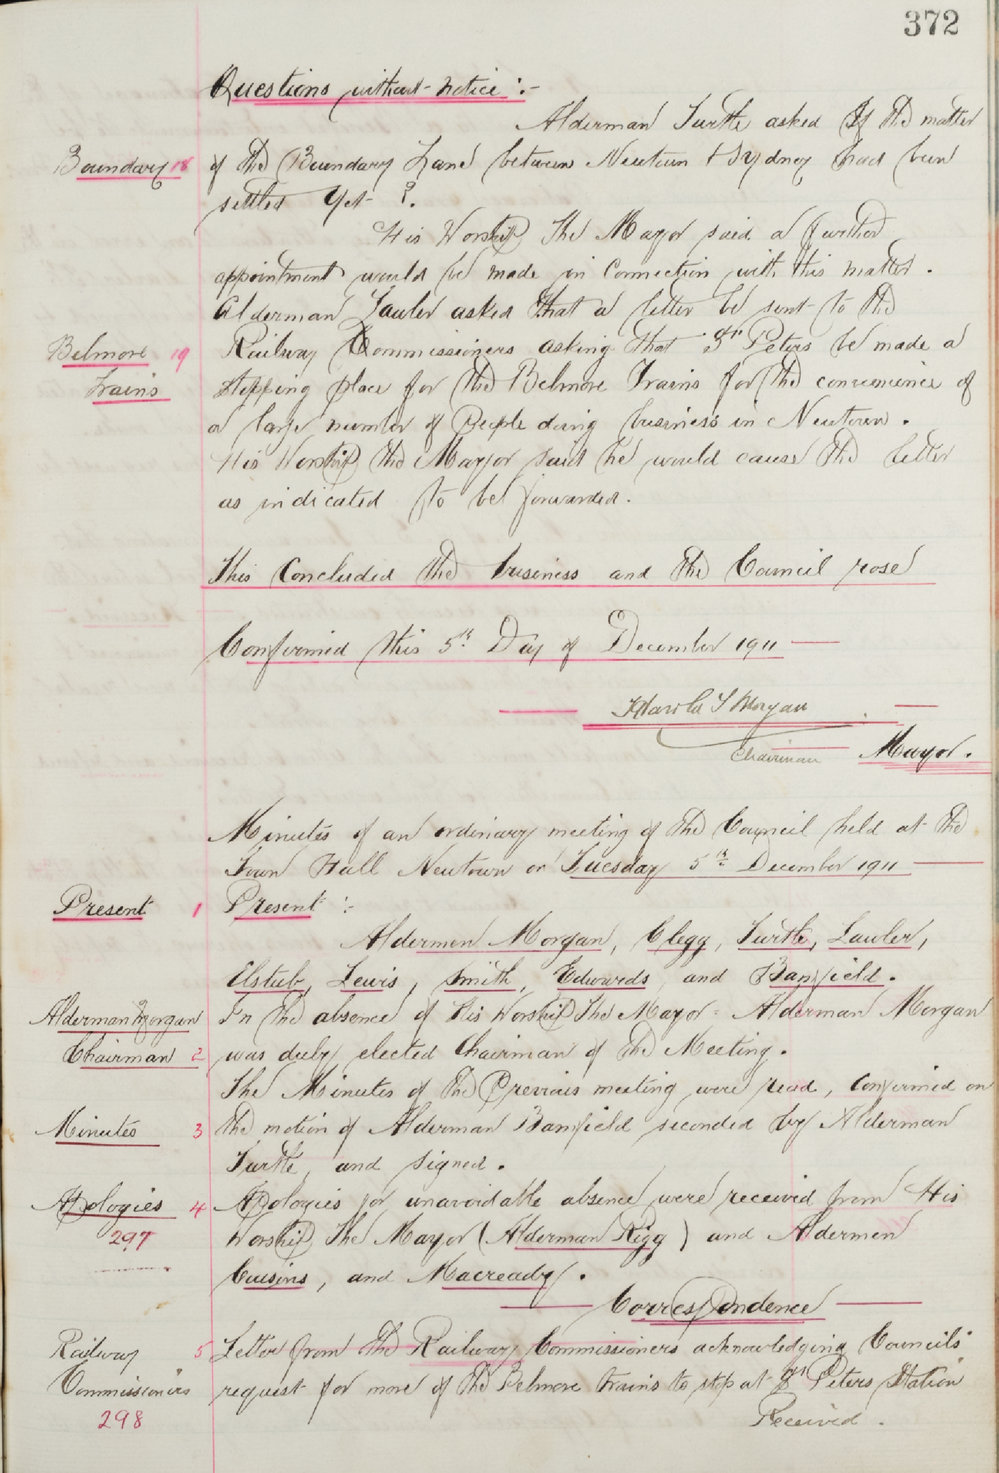 372
Questions without notice :-
Alderman Turtle asked If the matter
Boundary 18 of the Boundary Lane between Newtown & Sydney had been
settled yet ?.
His Worship The Mayor said a further
appointment would be made in connection with this matter.
Alderman Lawler asked that a letter be sent to the
Belmore 19 Railway Commissioners asking that St Peters be made a
Trains stopping place for the Belmore Trains for the convenience of
a large number of People doing business in Newtown.
His Worship the Mayor said he would cause the letter
as indicated to be forwarded.
This Concluded the business and the Council rose
Confirmed this 5th Day of December 1911
Harold T Morgan
Chairman Mayor.
Minutes of an ordinary meeting of the Council held at the
Town Hall Newtown on Tuesday 5th December 1911
Present 1 Present :-
Aldermen Morgan, Clegg, Turtle, Lawler,
Elstub, Lewis, Smith, Edwards and Banfield.
Alderman Morgan In the absence of His Worship The Mayor - Alderman Morgan
Chairman 2 was duly elected Chairman of the Meeting.
The Minutes of the Previous meeting were read, confirmed on
Minutes 3 the motion of Alderman Banfield seconded by Alderman
Turtle, and signed.
Apologies 4 Apologies for unavoidable absence were received from His
297 Worship The Mayor (Alderman Rigg) and Aldermen
Cusins, and Macready.
Correspondence
Railway 5 Letter from the Railway Commissioners acknowledging Councils
Commissioners request for more of the Belmore trains to stop at St Peters Station
298 Received.